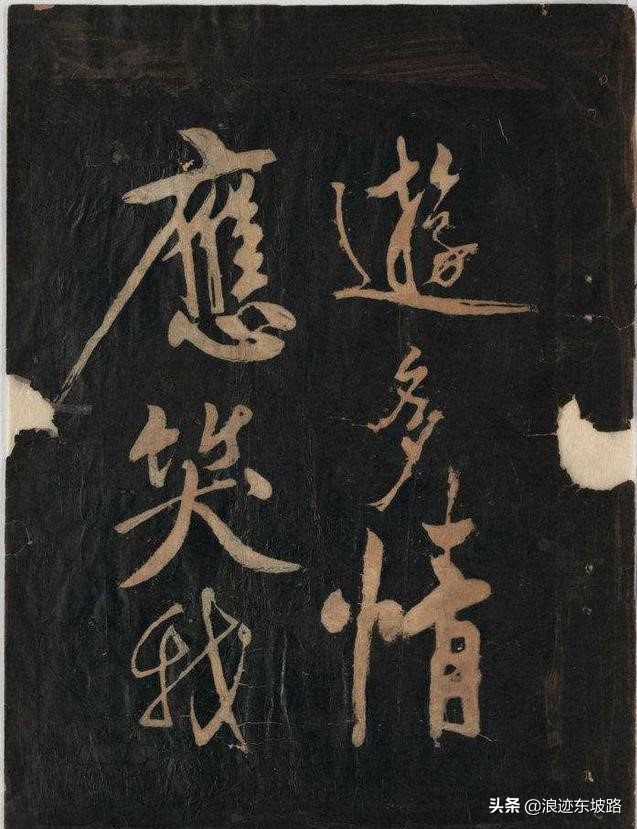 遊多情
應笑我
头条 @浪迹东坡路